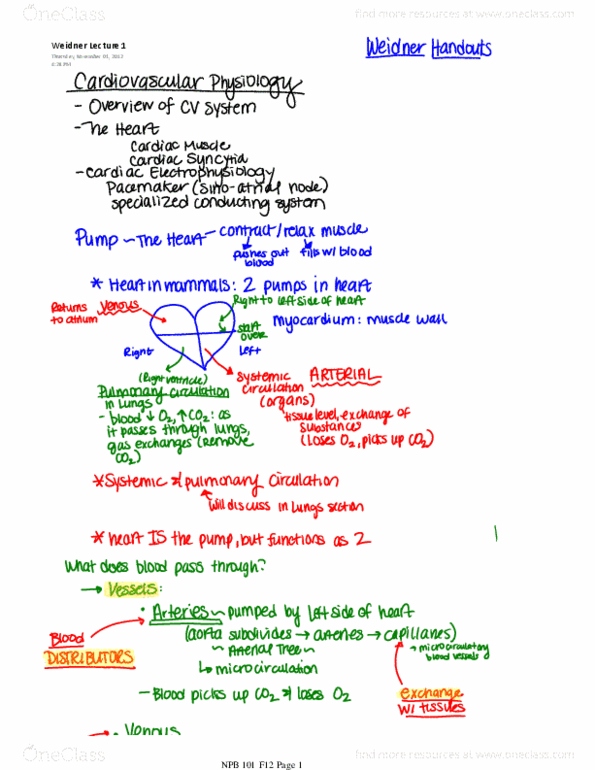 OneClass
find more resources at www.oneclass.com
Weidner Lecture 1
Weidner Handouts
Cardiovascular Physiology
- Overview of CV System
- The Heart
Cardiac Muscle
Cardiac Syncytia
- Cardiac Electrophysiology
Pacemaker (Sino-atrial node)
specialized conducting system
Pump ~ The Heart - contract/relax muscle
pushes out blood
fills w/ blood
* Heart in mammals: 2 pumps in heart
Returns to atrium
Venous
Right to left side of heart
start over
myocardium: muscle wall
Right
Left
(Right ventricle)
Pulmonary circulation
in Lungs
- blood ↓ O2, ↑ CO2: as
it passes through lungs,
gas exchanges (remove
CO2)
Systemic
circulation
(organs)
ARTERIAL
tissue level, exchange of
substances
(loses O2, picks up CO2)
* Systemic & pulmonary circulation
will discuss in lungs section
* heart IS the pump, but functions as 2
What does blood pass through?
→ Vessels:
• Arteries ~ pumped by left side of heart
(aorta subdivides → arteries → capillaries)
~ Arterial Tree ~
↳ microcirculation
→ microcirculatory
blood vessels
Blood
DISTRIBUTORS
- Blood picks up CO2 & loses O2
exchange
w/ tissues
→ • Venous
OneClass
find more resources at www.oneclass.com
NPB 101 F12 Page 1